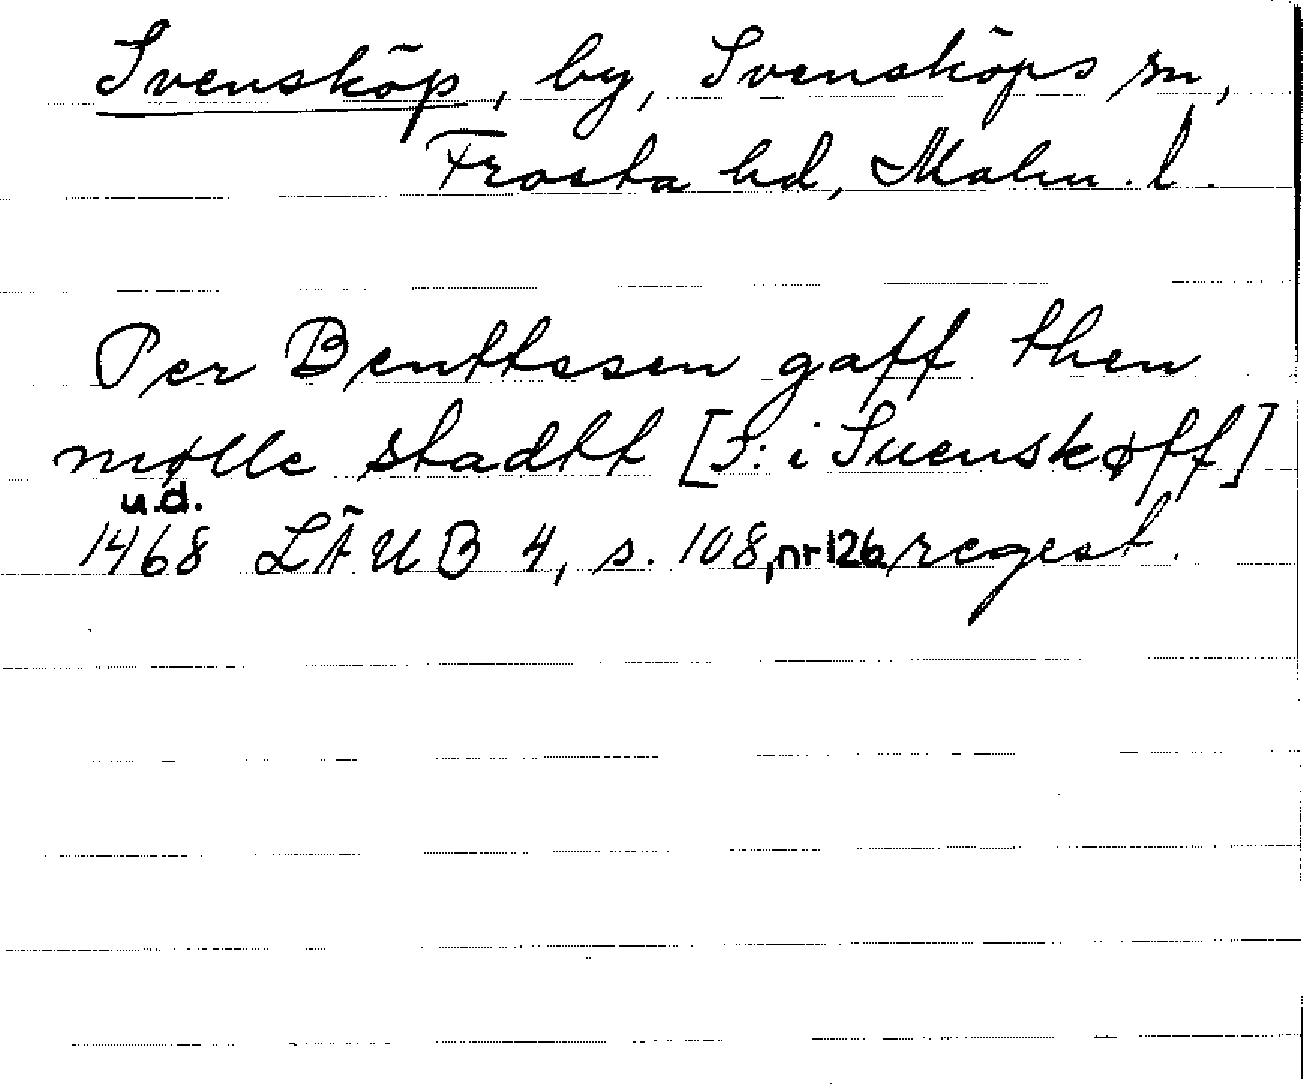 Svensköp, by, Svensköps sn,
Frosta hd, Malm. l.
Per Benttssen gaff then
mølle stadtt [ɔ: i Suenskøff]
u.d.
1468 LÄUB 4, s. 108, nr 126 regest.